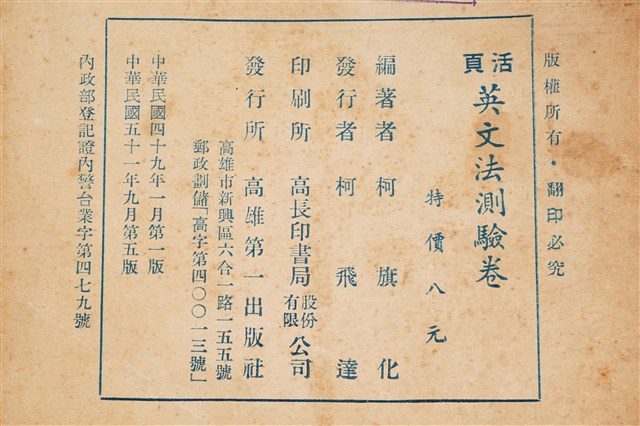 版權所有・翻印必究
活頁英文法測驗卷
特價八元
編著者 柯旗化
發行者 柯飛達
印刷所 高長印書局股份有限公司
發行所 高雄第一出版社
高雄市新興區六合一路一五五號
郵政劃儲「高字第四〇〇一三號」
中華民國四十九年一月第一版
中華民國五十一年九月第五版
內政部登記證內警台業字第四七九號